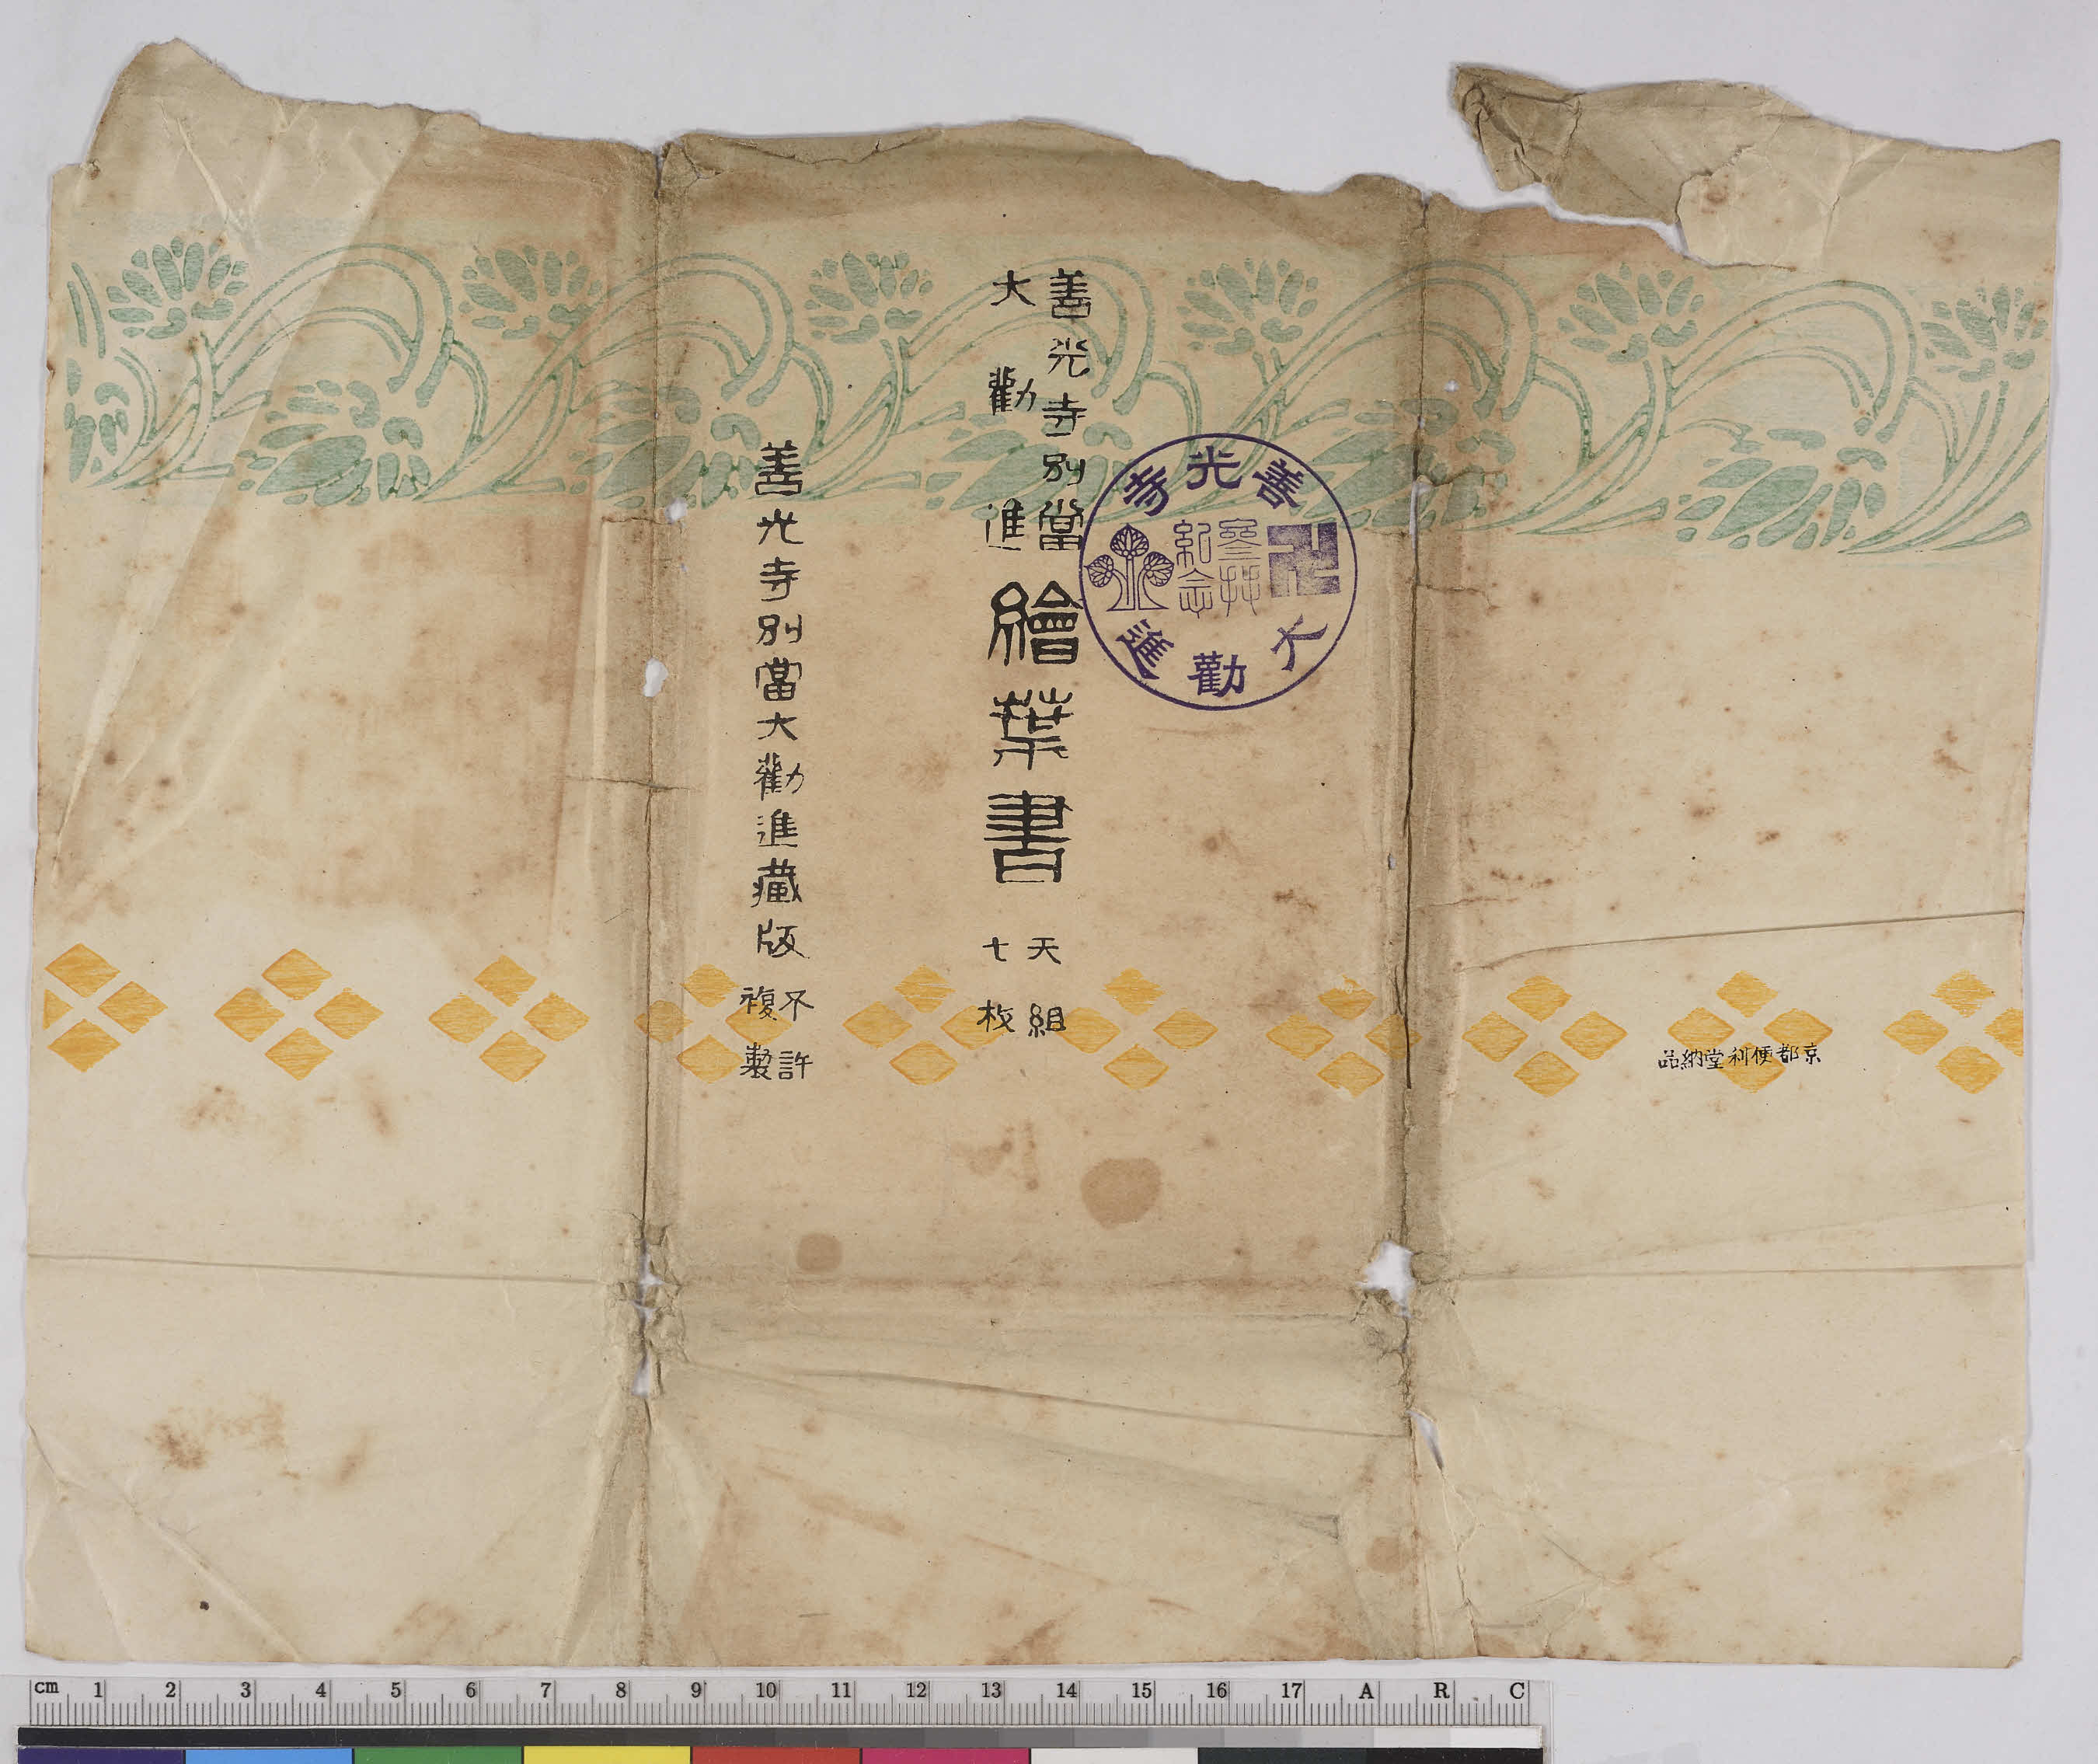 京都便利堂納品
善光寺別當
大勸進
繪葉書
天組
七枚
善光寺別當大勸進藏版
不許
複製
善光寺
大勸進
參拜
紀念
cm 1 2 3 4 5 6 7 8 9 10 11 12 13 14 15 16 17 A R C